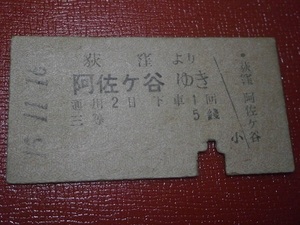 荻窪より
阿佐ケ谷ゆき
通用2日下車1回
三等 5銭
荻窪
阿佐ケ谷
小